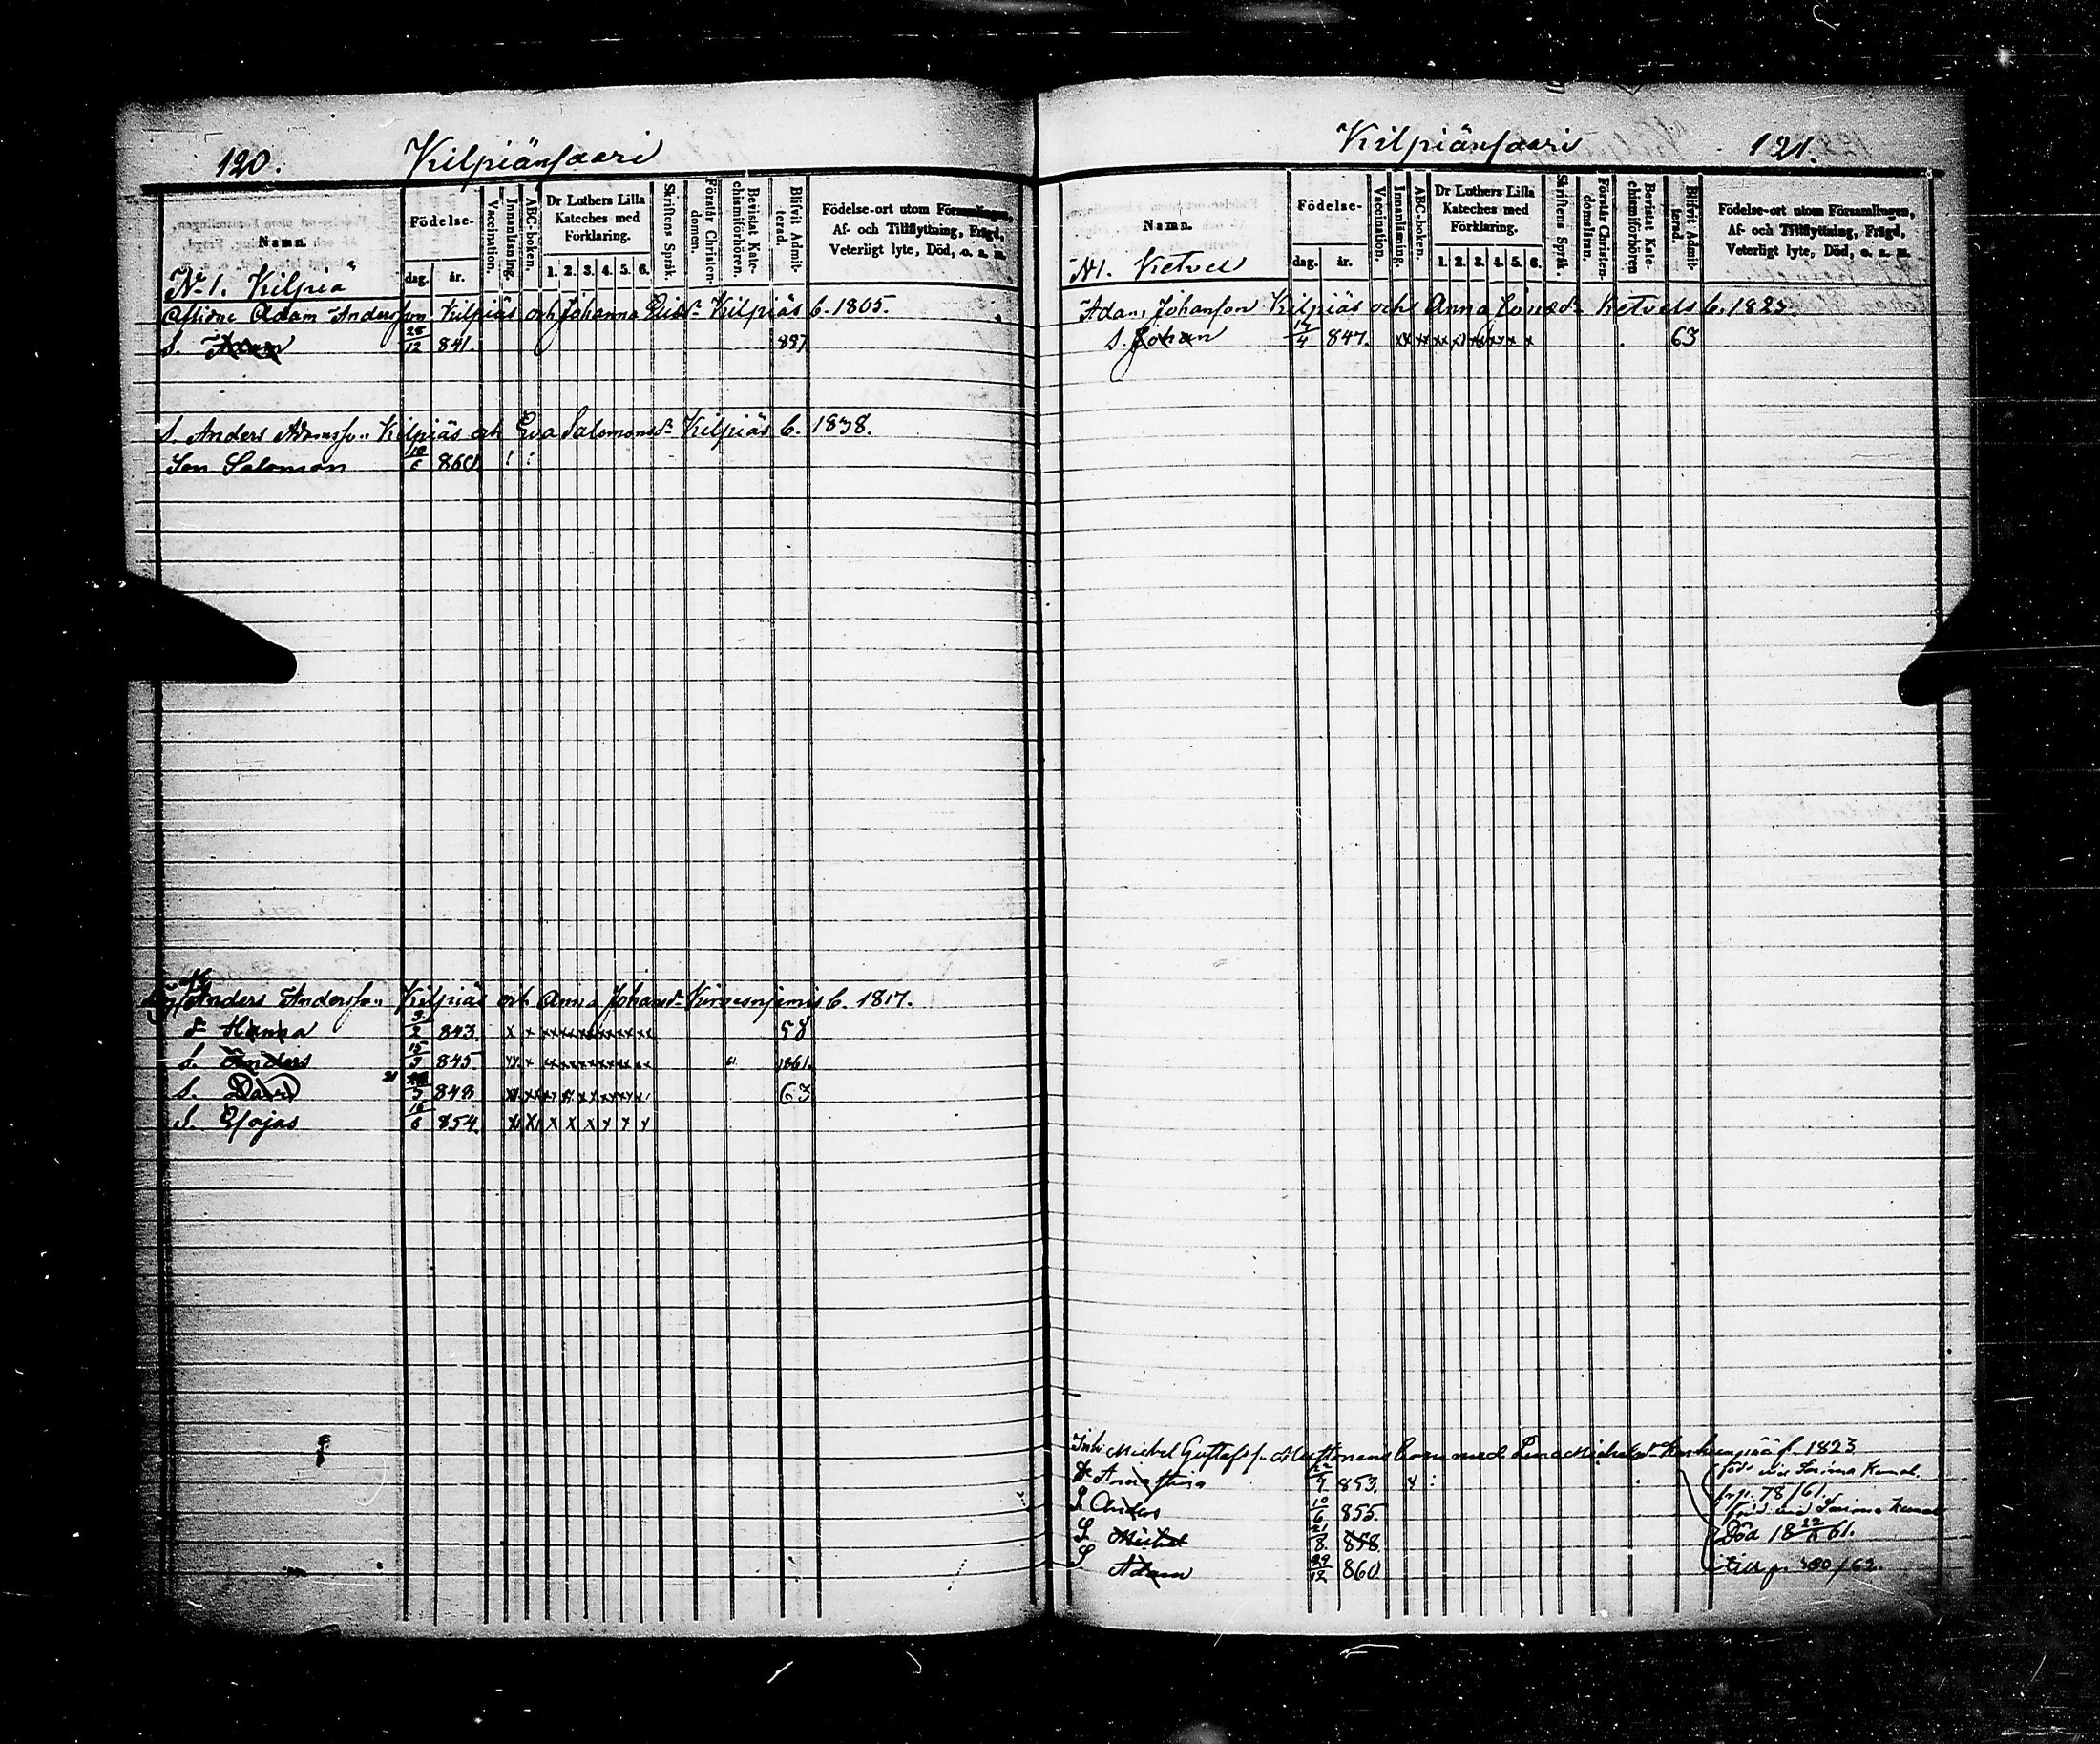 120. Kilpiänsaari
Namn.
Födelse-
dag. år.
Vaccination.
Innanläsning.
ABC-boken.
Dr Luthers Lilla Kateches med Förklaring.
1. 2. 3. 4. 5. 6.
Skriftens Språk.
Förstår Christendomen.
Bevistat Katechismiförhören.
Blifvit Admitterad.
Födelse-ort utom Församlingen,
Af- och Tillflyttning, Frägd,
Veterligt lyte, Död, o. s. m.
N 1. Kilpiä
Aflidne Adam Andersson Kilpiäs och Johanna Kilpiäs b. 1805.
S. Adam 28/12 841. 857
S. Anders Adamsson Kilpiäs och Eva Salomonsd Kilpiäs b. 1838.
Son Salomon 10/6 860
Anders Andersson Kilpiäs och Anna Johansd b. 1817.
d Hanna 9/2 843. x x xx xx xx xx xx xx 58
S. Anders 15/9 845 xx x xx xx xx xx xx xx 61. 1861.
S. David 31/5 848 63
S. Esajas 16/6 854. x x x x x x
Kilpiänsaari 121.
Namn.
Födelse-
dag. år.
Vaccination.
Innanläsning.
ABC-boken.
Dr Luthers Lilla Kateches med Förklaring.
1. 2. 3. 4. 5. 6.
Skriftens Språk.
Förstår Christendomsläran.
Bevistat Katechismiförhören
Blifvit Admitterad.
Födelse-ort utom Församlingen,
Af- och Tillflyttning, Frägd,
Veterligt lyte, Död, o. s. m.
N 1. Ketvel
Adam Johansson Kilpiäs och Anna Ketvels b. 1823.
S. Johan 14/4 847. 63
Inh. Michel Gustafss. Muttonens barn med Lena Michelsd f. 1823
D. 9 853.
p. 78/61.
S. Anders 10/6 855.
S. Michel 21/8 858. Död 18 22/ 61.
S Adam 29/12 860 /62.